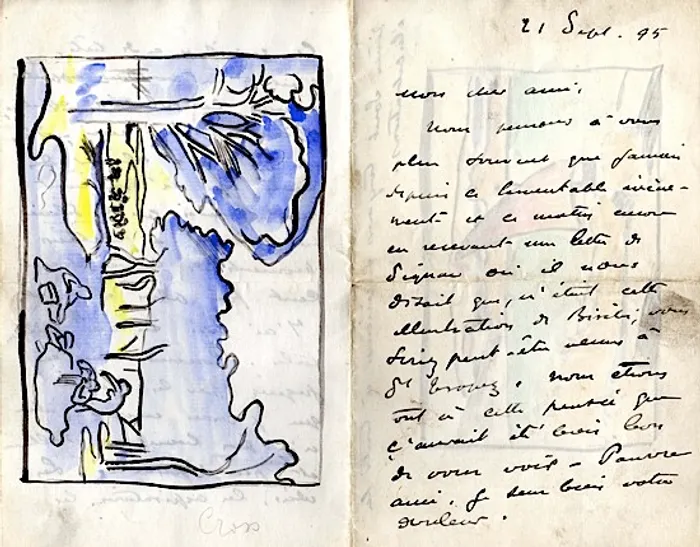 Cross
21 Sept. 95
mon cher ami,
Nous pensons à vous
plus souvent que jamais
depuis ce lamentable évène-
ment et ce matin encore
en recevant une lettre de
Signac où il nous
disait que, n'était cette
de vous
seriez peut-être venus à
St Tropez. Nous étions
tout à cette pensée que
ç'aurait été bien bon
de vous voir - Pauvre
ami, je sens bien votre
douleur.